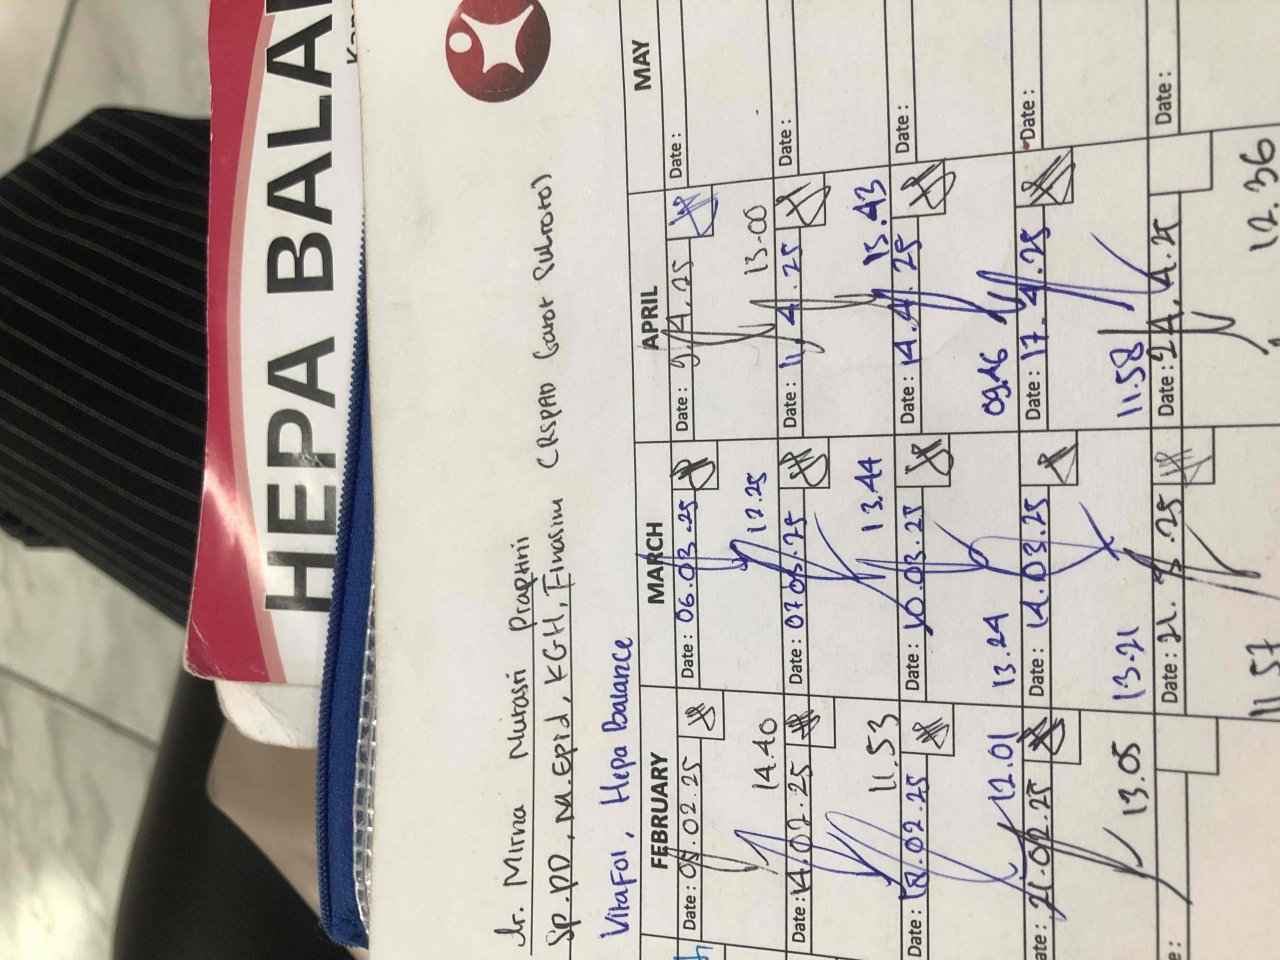 HEPA BALA
dr. Mirna Nurasri Praptini
Sp.PD, M.Epid, KGH, Finasim (RSPAD Gatot Subroto)
VitaFol, Hepa Balance
FEBRUARY MARCH APRIL MAY
Date: 02.25 Date: 06.03.25 Date: 9.4.25 Date:
14.40 12.25 13.00
Date: 14.02.25 Date: 07.03.25 Date: 11.4.25 Date:
11.53 13.44 13.43
Date: 18.02.25 Date: 10.03.25 Date: 14.4.25 Date:
12.01 13.24 09.46
ate: 21.02.25 Date: 14.03.25 Date: 17.4.25 Date:
13.05 13.21 11.58
e: Date: 21. .25 Date: 24.4.25 Date:
11.57 12.36